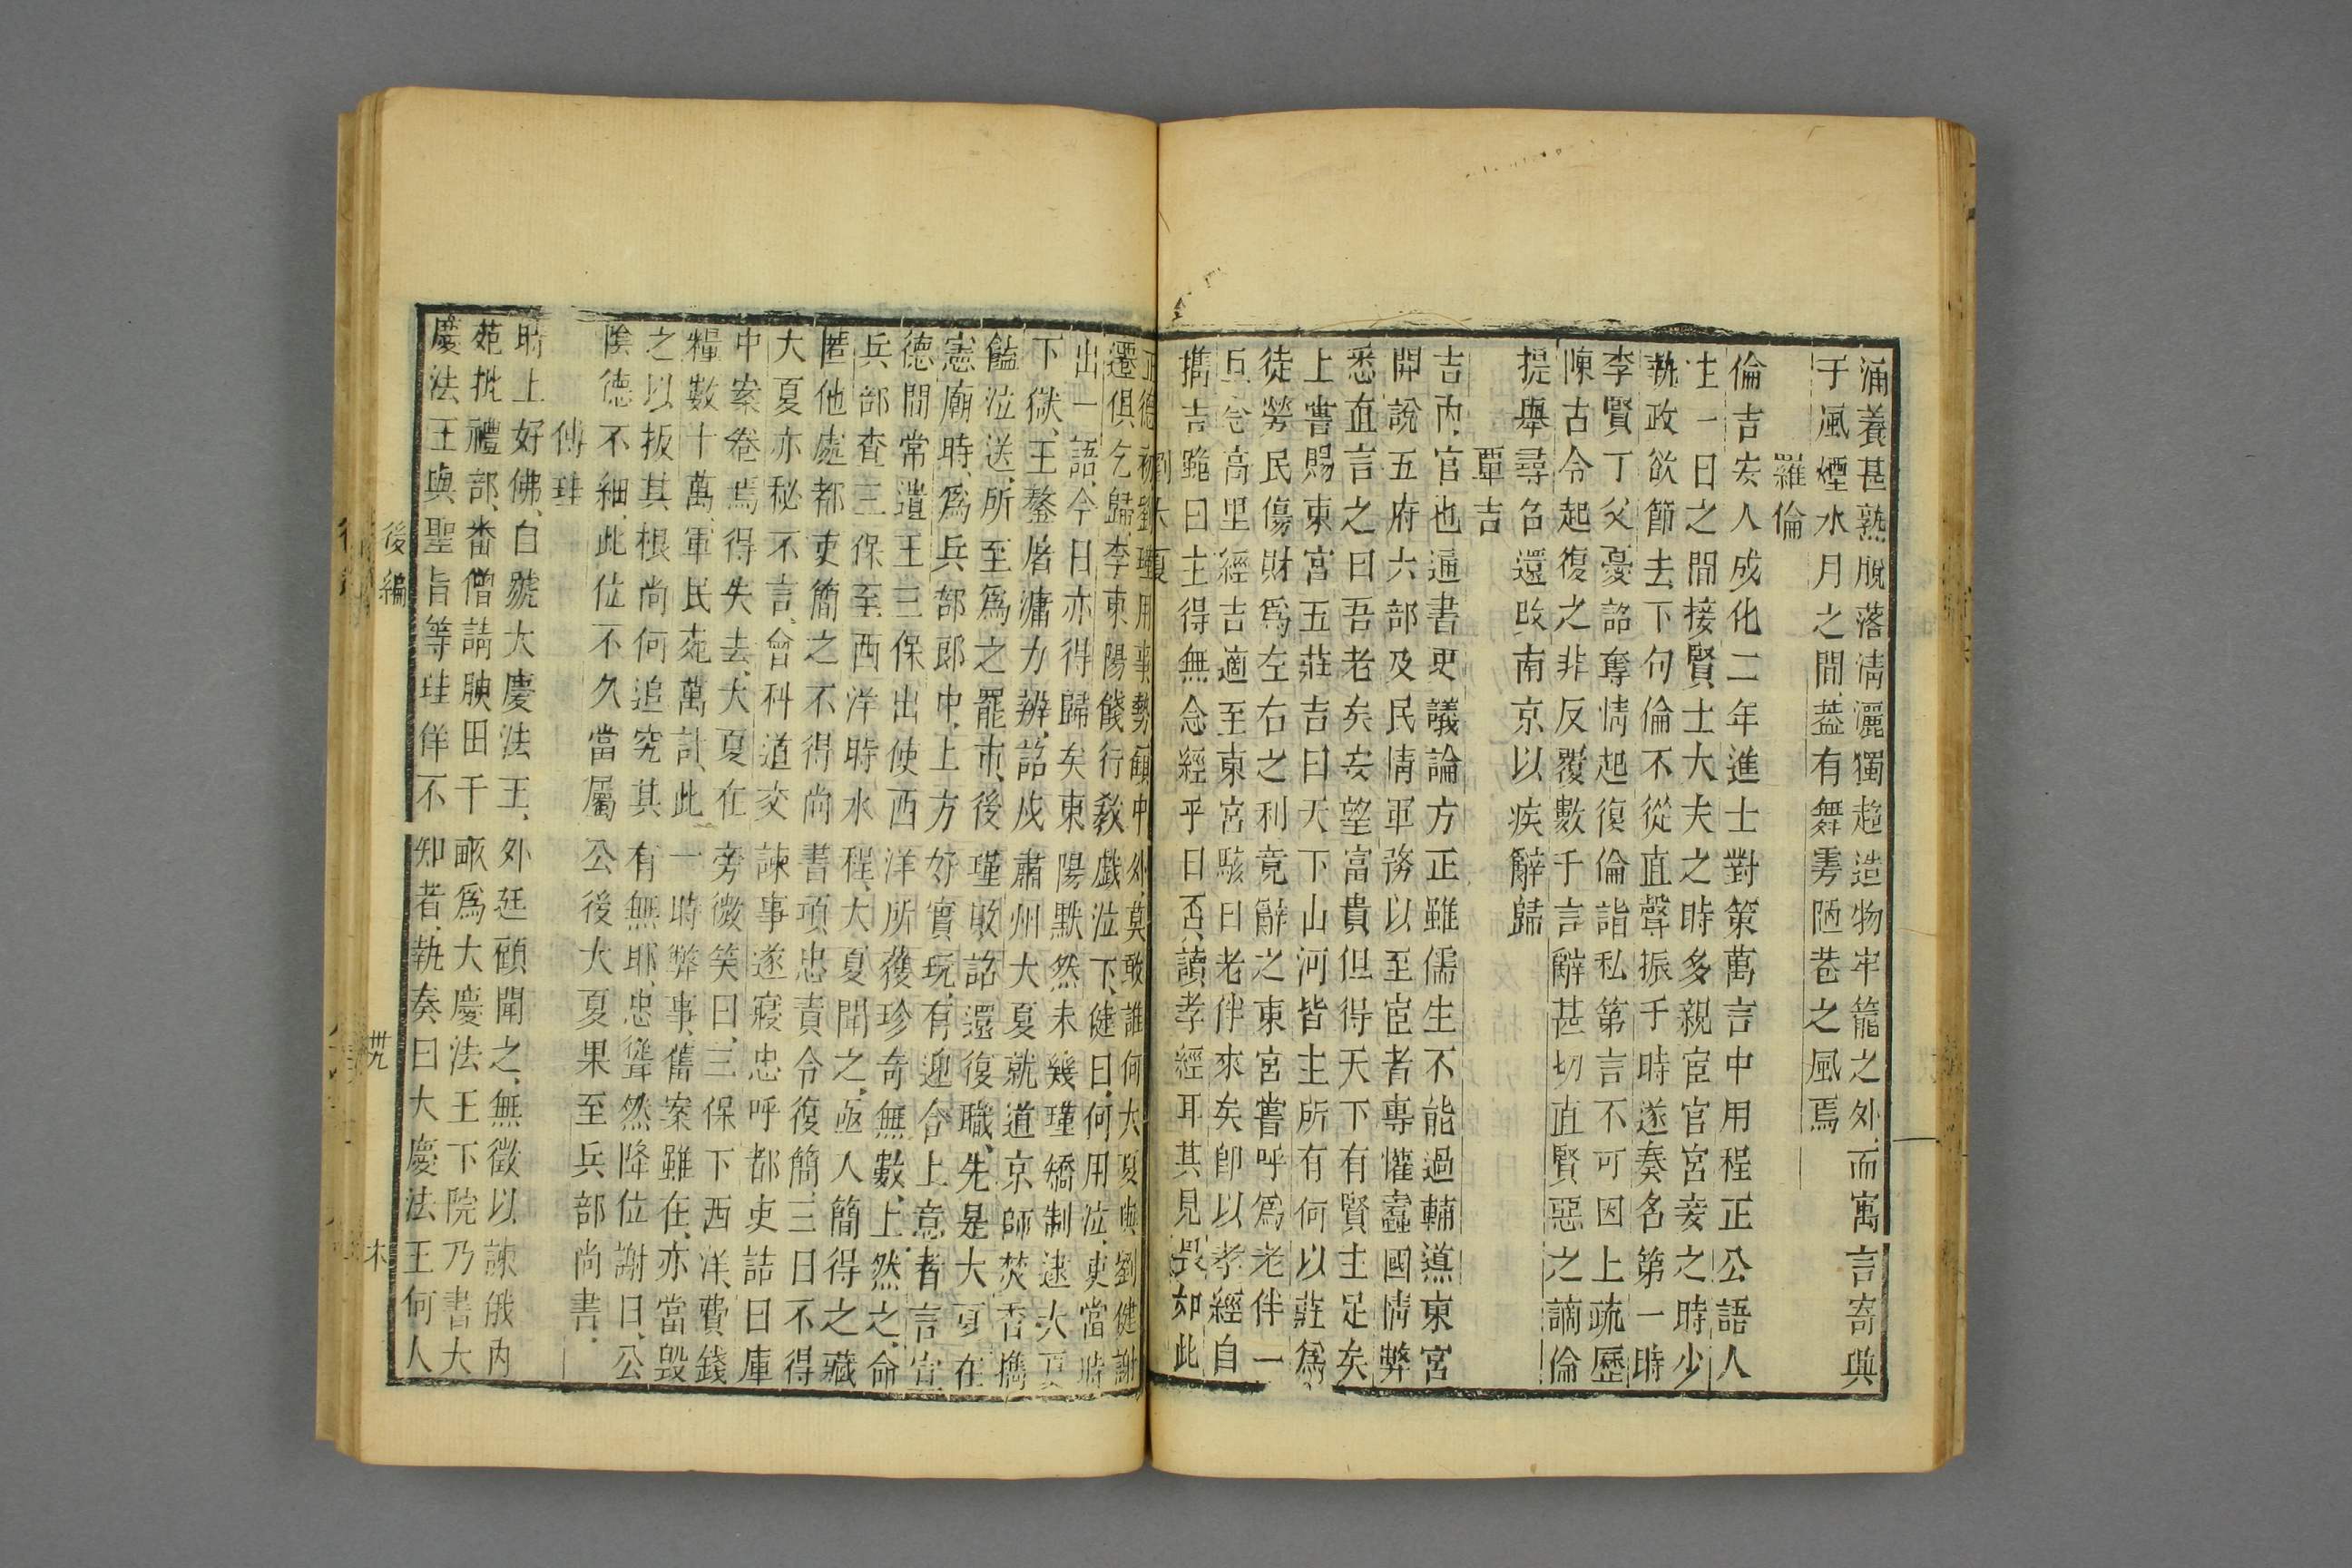 涵養甚熟脫落清灑獨超造物牢籠之外而寓言寄興
于風煙水月之間葢有舞雩陋巷之風焉
羅倫
倫吉安人成化二年進士對策萬言中用程正公語人
主一日之間接賢士大夫之時多親宦官宮妾之時少
執政欲節去下句倫不從直聲振于時遂奏名第一時
李賢丁父憂詔奪情起復倫詣私第言不可因上疏歷
陳古今起復之非反覆數千言辭甚切直賢惡之謫倫
提舉尋召還改南京以疾辭歸
覃吉
吉內官也通書史議論方正雖儒生不能過輔導東宮
開說五府六部及民情軍務以至宦者專權蠹國情弊
悉直言之曰吾老矣安望富貴但得天下有賢主足矣
上嘗賜東宮五莊吉曰天下山河皆主所有何以莊爲
徒勞民傷財爲左右之利竟辭之東宮嘗呼爲老伴一
日念高里經吉適至東宮駭曰老伴來矣卽以孝經自
攜吉跪曰主得無念經乎曰否讀孝經耳其見畏如此
劉大夏
正德初劉瑾用事勢傾中外莫敢誰何大夏與劉健謝
遷俱乞歸李東陽餞行欷歔泣下健曰何用泣使當時
出一語今日亦得歸矣東陽默然未幾瑾矯制逮大夏
下獄王鏊屠滽力辨詔戍肅州大夏就道京師焚香攜
饁泣送所至爲之罷市後瑾敗詔還復職先是大夏在
憲廟時爲兵部郎中上方好寶玩有迎合上意者言宣
德間常遣王三保出使西洋所獲珍奇無數上然之命
兵部查三保至西洋時水程大夏聞之亟人簡得之藏
匿他處都吏簡之不得尚書項忠責令復簡三日不得
大夏亦秘不言會科道交諫事遂寢忠呼都吏詰曰庫
中案卷焉得失去大夏在旁微笑曰三保下西洋費錢
糧數十萬軍民死萬計此一時弊事舊案雖在亦當毀
之以拔其根尚何追究其有無耶忠聳然降位謝曰公
陰德不細此位不久當屬公後大夏果至兵部尚書
傅珪
時上好佛自號大慶法王外廷頗聞之無徵以諫俄內
苑批禮部番僧請腴田千畝爲大慶法王下院乃書大
慶法王與聖旨等珪佯不知者執奏曰大慶法王何人
後編
卅
木